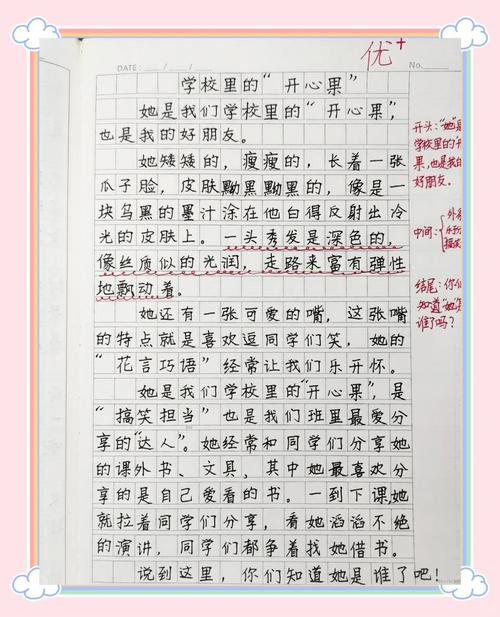 优+
DATE: / /
No.
学校里的“开心果”
她是我们学校里的“开心果”,
也是我的好朋友。
她矮矮的,瘦瘦的,长着一张
瓜子脸,皮肤黝黑黝黑的,像是一
块乌黑的墨汁涂在他白得反射出冷
光的皮肤上。一头秀发是深色的,
像丝质似的光润,走路来富有弹性
地飘动着。
她还有一张可爱的嘴,这张嘴
的特点就是喜欢逗同学们笑,她的
“花言巧语”经常让我们乐开怀。
她是我们学校里的“开心果”,是
“搞笑担当”也是我们班里最爱分
享的“达人”。她经常和同学们分享她
的课外书、文具,其中她最喜欢分
享的是自己爱看的书。一到下课,她
就拉着同学们分享,看她滔滔不绝
的演讲,同学们都争着找她借书。
说到这里,你们知道她是谁了吧!
开头:“她”是
学校里的“开
果,也是我的
好朋友。
中间:
外
搞笑
结尾:你们
知道“她”
谁了吗?